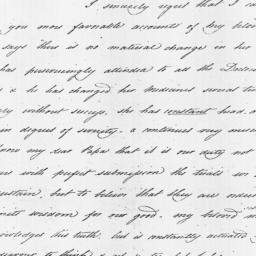 I sincerely regret that I ca
you more favorable accounts of my belov
says there is no material change in her
has perseveringly attended to all the Doctor
& he has changed her medicines several tim
ly without success. She has constant head
in degrees of severity. & continues very much
know my dear Papa that it is our duty not
us with perfect submission the trials we
sustain, but to believe that they are order
wisdom for our good. my beloved
knowledges this truth. but is constantly